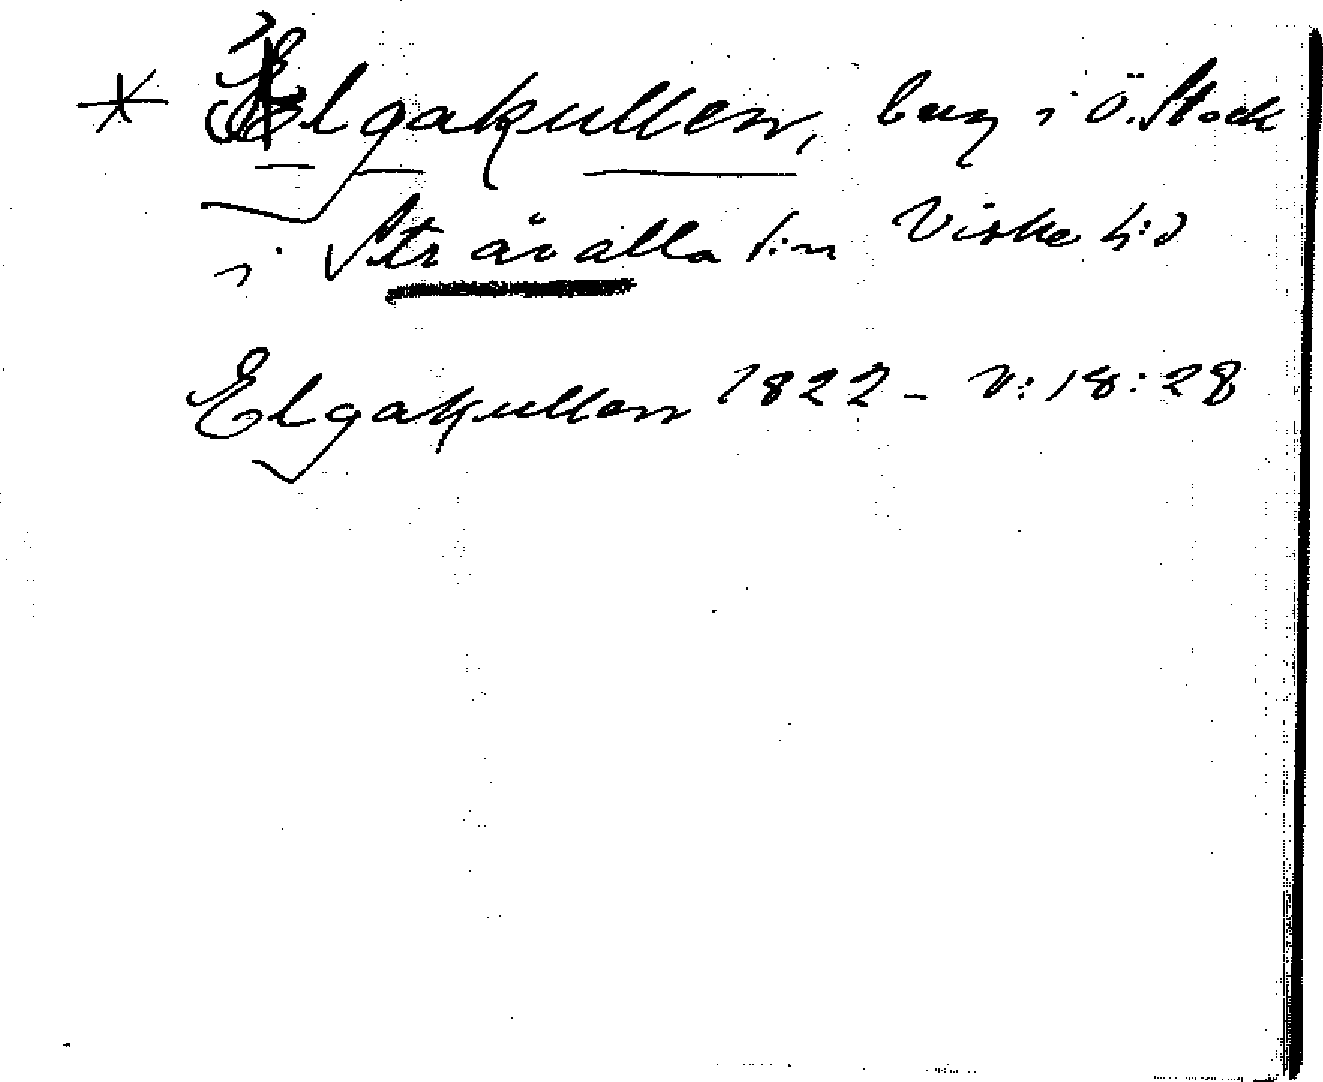 * Elgakullen, berg i Ö. Stock
i Stråvalla sn Viske hd
Elgakullen 1822 - V: 18: 28